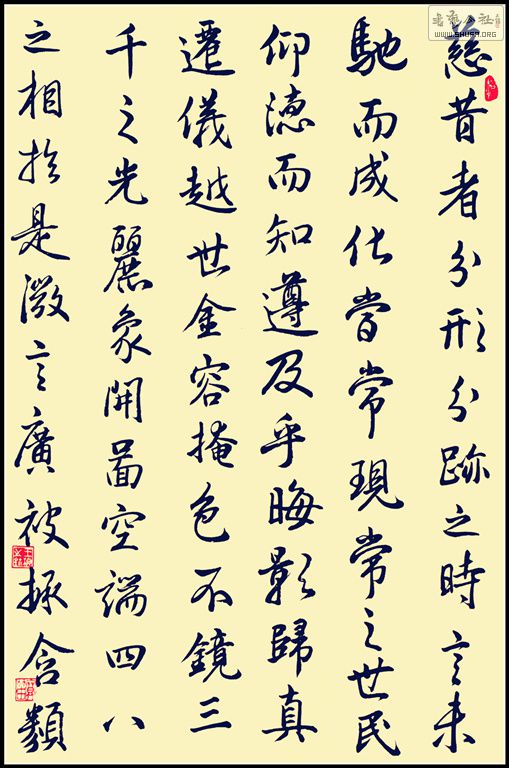 慈昔者分形分跡之時言未
馳而成化當常現常之世民
仰德而知遵及乎晦影歸真
遷儀越世金容掩色不鏡三
千之光麗象開圖空端四八
之相於是微言廣被拯含類
書法公社
WWW.SHUFA.ORG